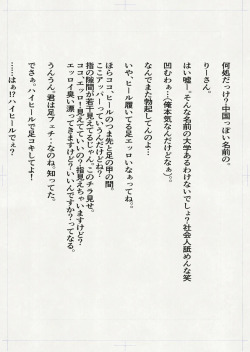 何処だっけ？中国っぽい名前の。
りーさん。
はい嘘ー。そんな名前の大学あるわけないでしょ？社会人舐めんな笑
凹むわぁ…（俺本気なんだけどなぁ）。
なんでまた勃起してんのよ…
いや、ヒール履いてる足エッロいなぁってね。
ほらココ、ヒールのつま先と足の甲の間。
ここアッパーっていうんだけどね？
指の隙間が若干見えてるじゃん。このチラ見せ。
ココ、エッロ！見えてていいの？指見えちゃいますけど？
エッロイ臭い漂ってきますけど？いいんですか？ってなる。
うんうん。君は足フェチ・なのね。知ってた。
でさぁ。ハイヒールで足コキしてよ！
……はぁ!?ハイヒールでぇ？